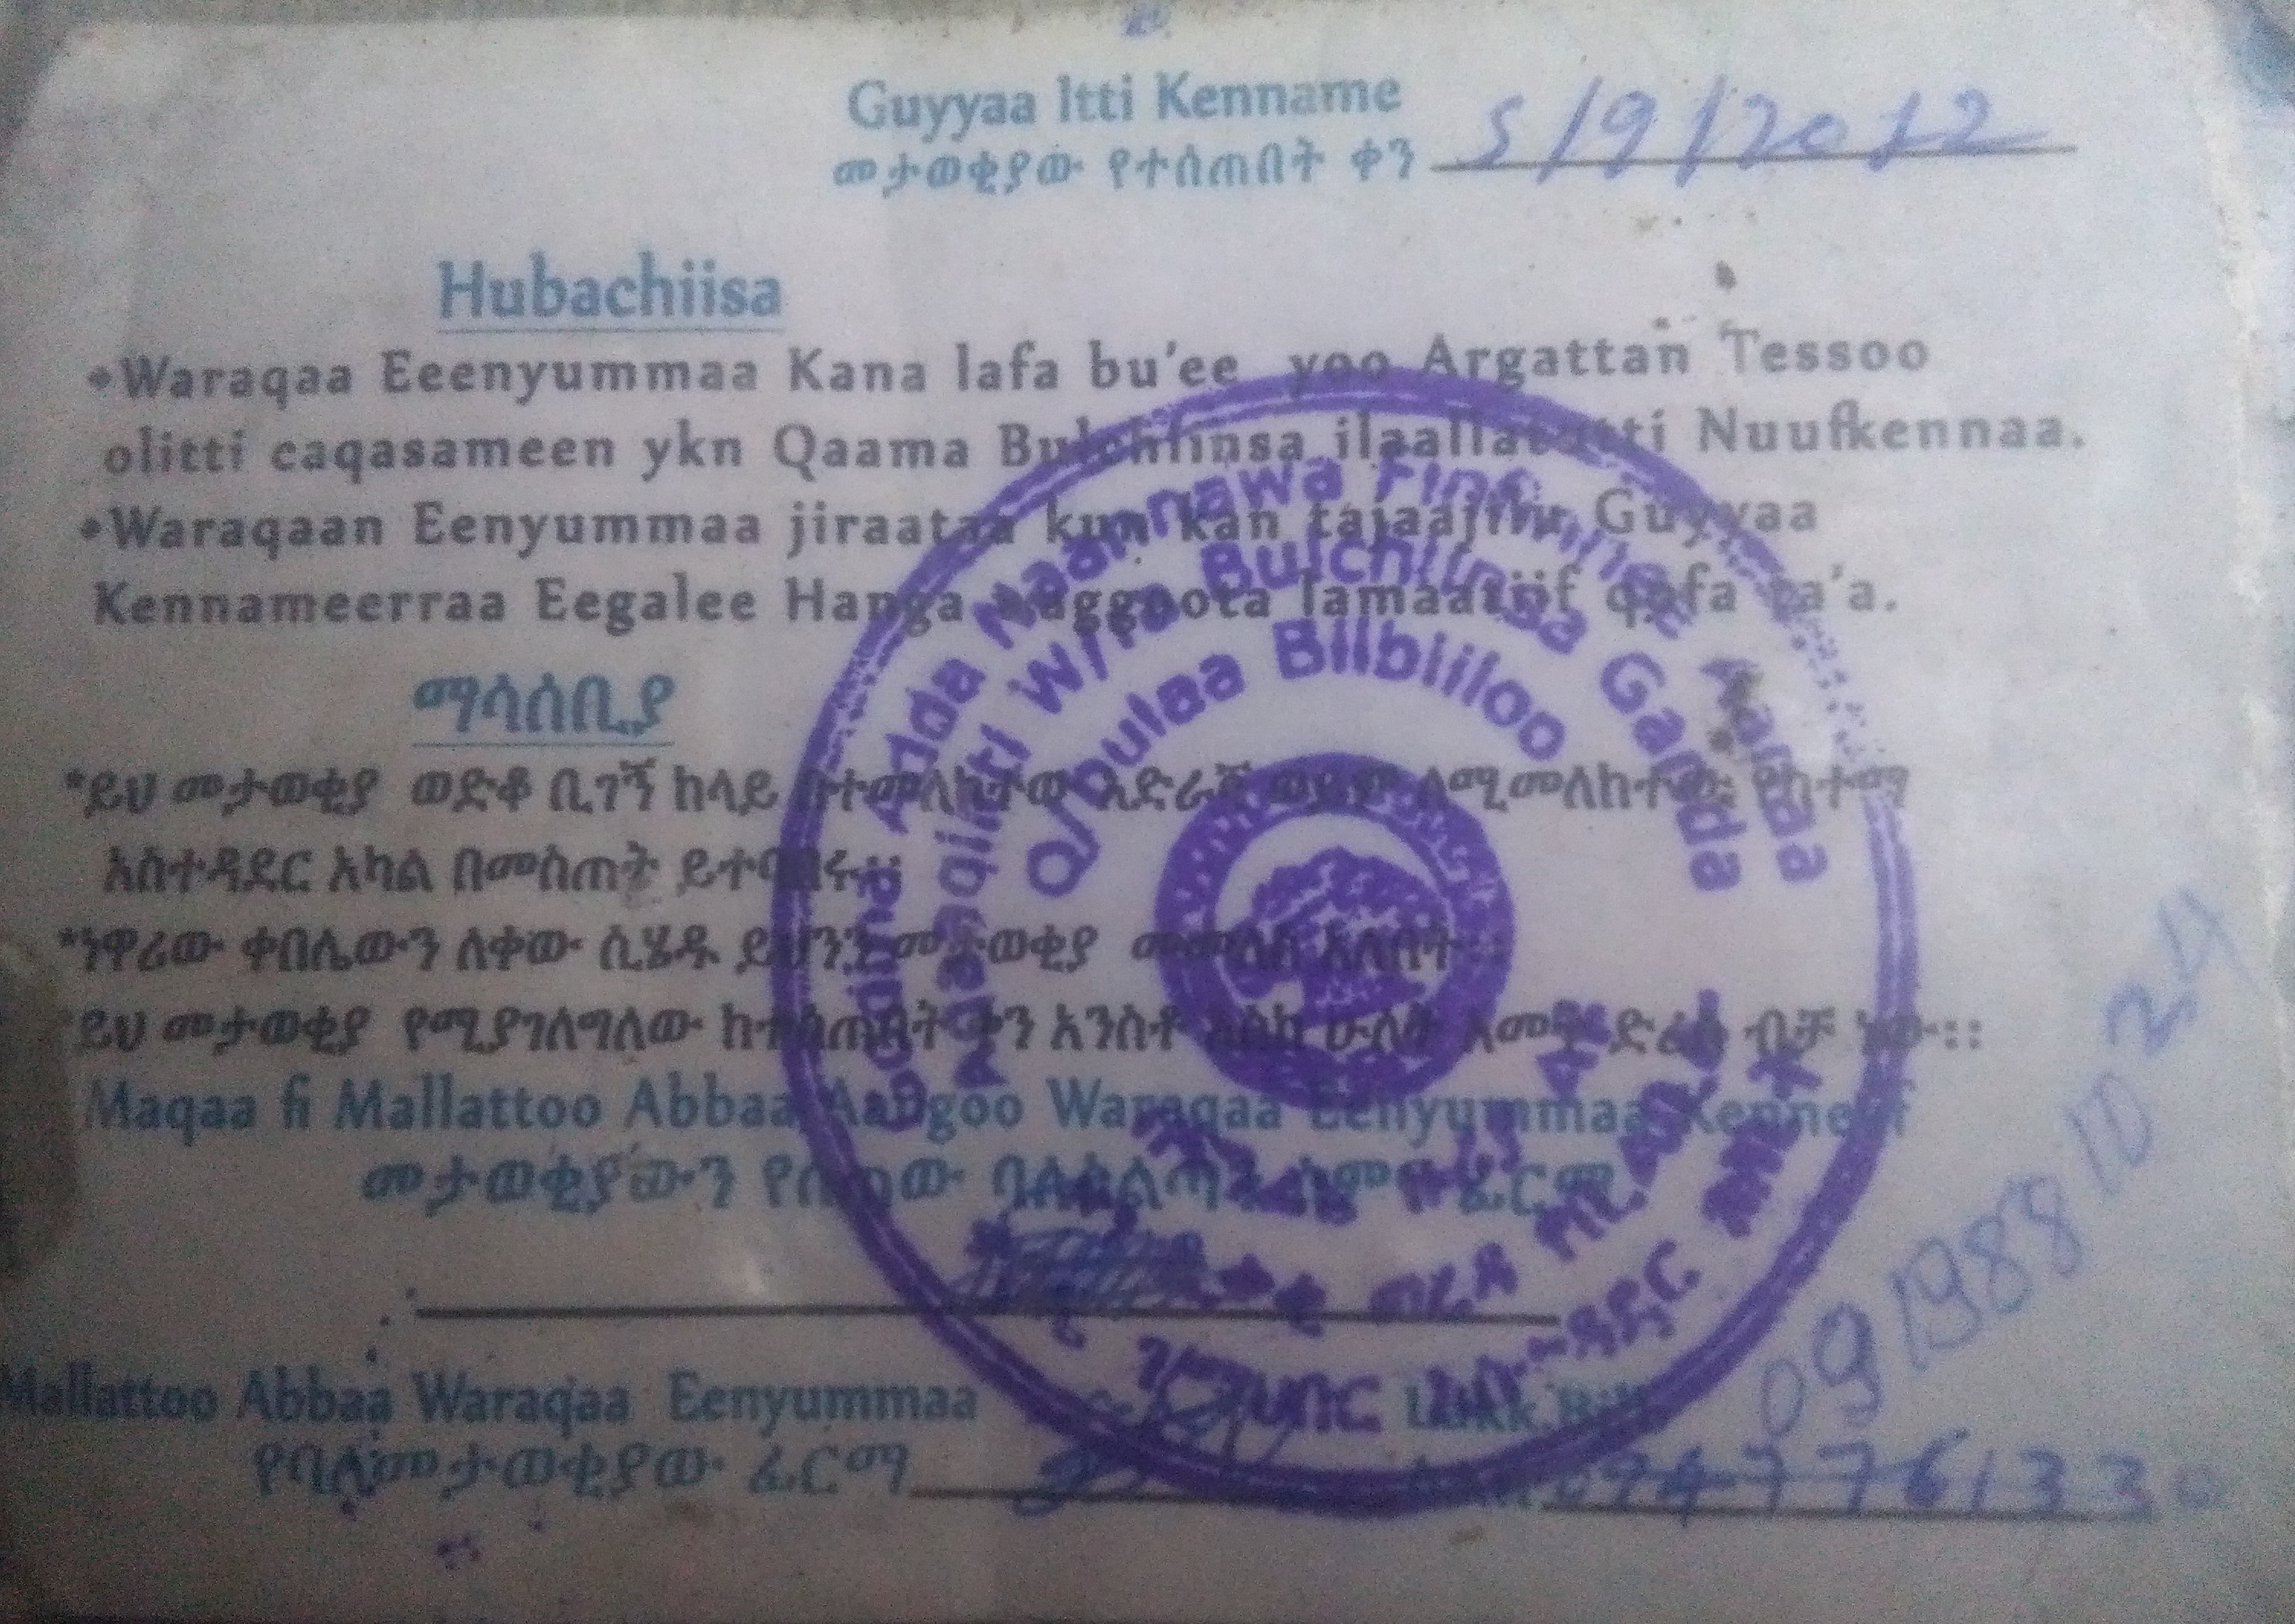 Guyyaa Itti Kenname
መታወቂያው የተሰጠበት ቀን 5/9/2012
Hubachiisa
•Waraqaa Eeenyummaa Kana lafa bu'ee yoo Argattan Tessoo
olitti caqasameen ykn Qaama Bulchiinsa ilaallatutti Nuufkennaa.
•Waraqaan Eenyummaa jiraataa kun kan tajaajilu Guyyaa
Kennameerraa Eegalee Hanga Waggoota lamaatiif qofa ta'a.
ማሳሰቢያ
*ይህ መታወቂያ ወድቆ ቢገኝ ከላይ በተመለከተው አድራሻ ወይም ለሚመለከተው ከተማ
አስተዳደር አካል በመስጠት ይተባበሩ።
*ነዋሪው ቀበሌውን ለቀው ሲሄዱ ይህንን መታወቂያ መመለስ አለበት።
*ይህ መታወቂያ የሚያገለግለው ከተሰጠበት ቀን አንስቶ እስከ ሁለት አመት ድረስ ብቻ ነው።
Maqaa fi Mallattoo Abbaa Aangoo Waraqaa Eenyummaa Kenneef
መታወቂያውን የሰጠው ባለስልጣን ስምና ፊርማ
Mallattoo Abbaa Waraqaa Eenyummaa Lakk Bilb
የባለመታወቂያው ፊርማ 0947761330
0919881024
Godina Adda Naannawa Finfinnee Aanaa
Aqaaqiitti W/ra Bulchiinsa Ganda
Q/bulaa Bilbiiloo